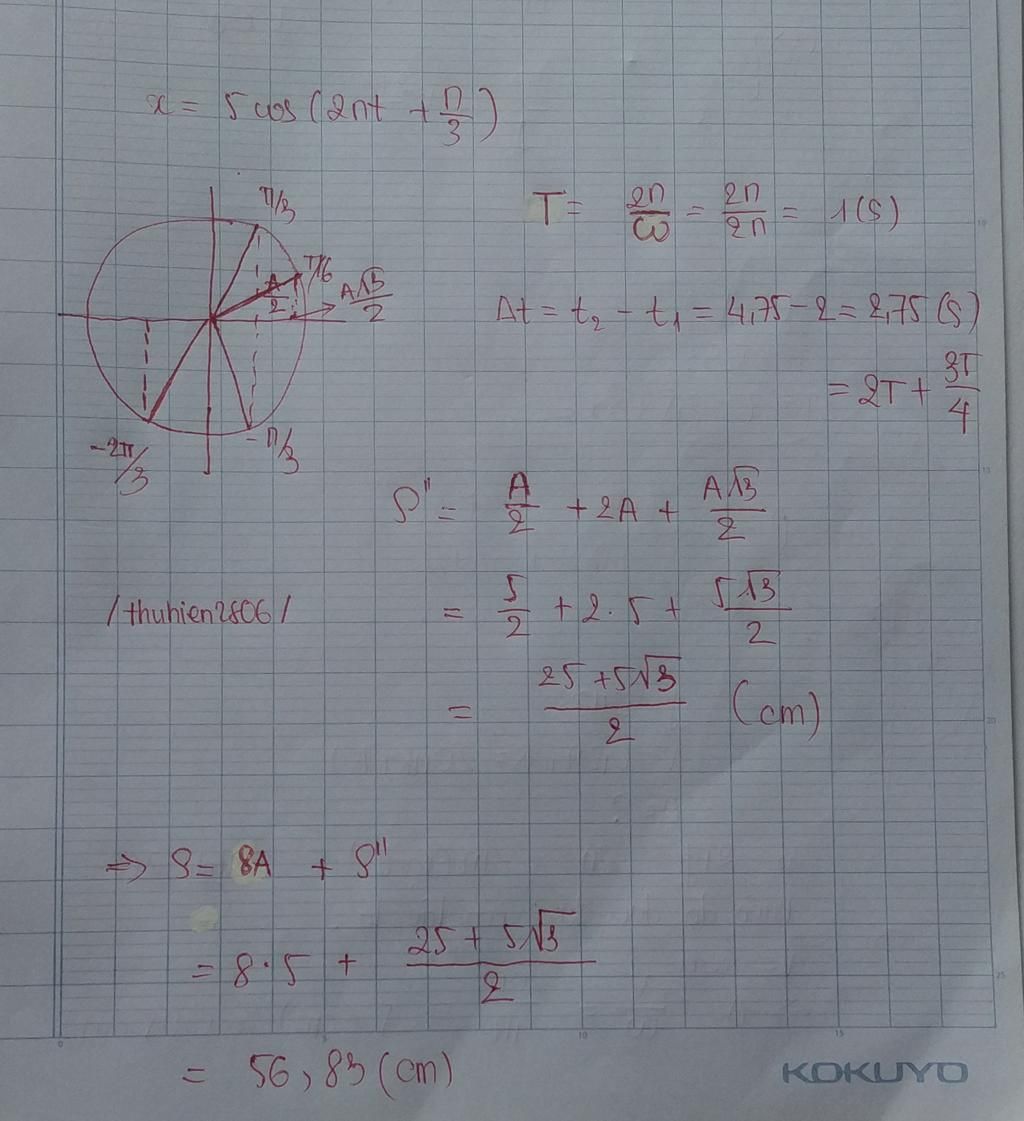 x = 5 cos (2πt + π/3)
π/3
π/6
A/2
A√3/2
-2π/3
-π/3
T = 2π/ω = 2π/2π = 1 (s)
Δt = t₂ - t₁ = 4,75 - 2 = 2,75 (s)
= 2T + 3T/4
S" = A/2 + 2A + A√3/2
/thuhien2806/
= 5/2 + 2.5 + 5√3/2
= (25 + 5√3)/2 (cm)
=> S = 8A + S"
= 8.5 + (25 + 5√3)/2
= 56,83 (cm)
KOKUYO